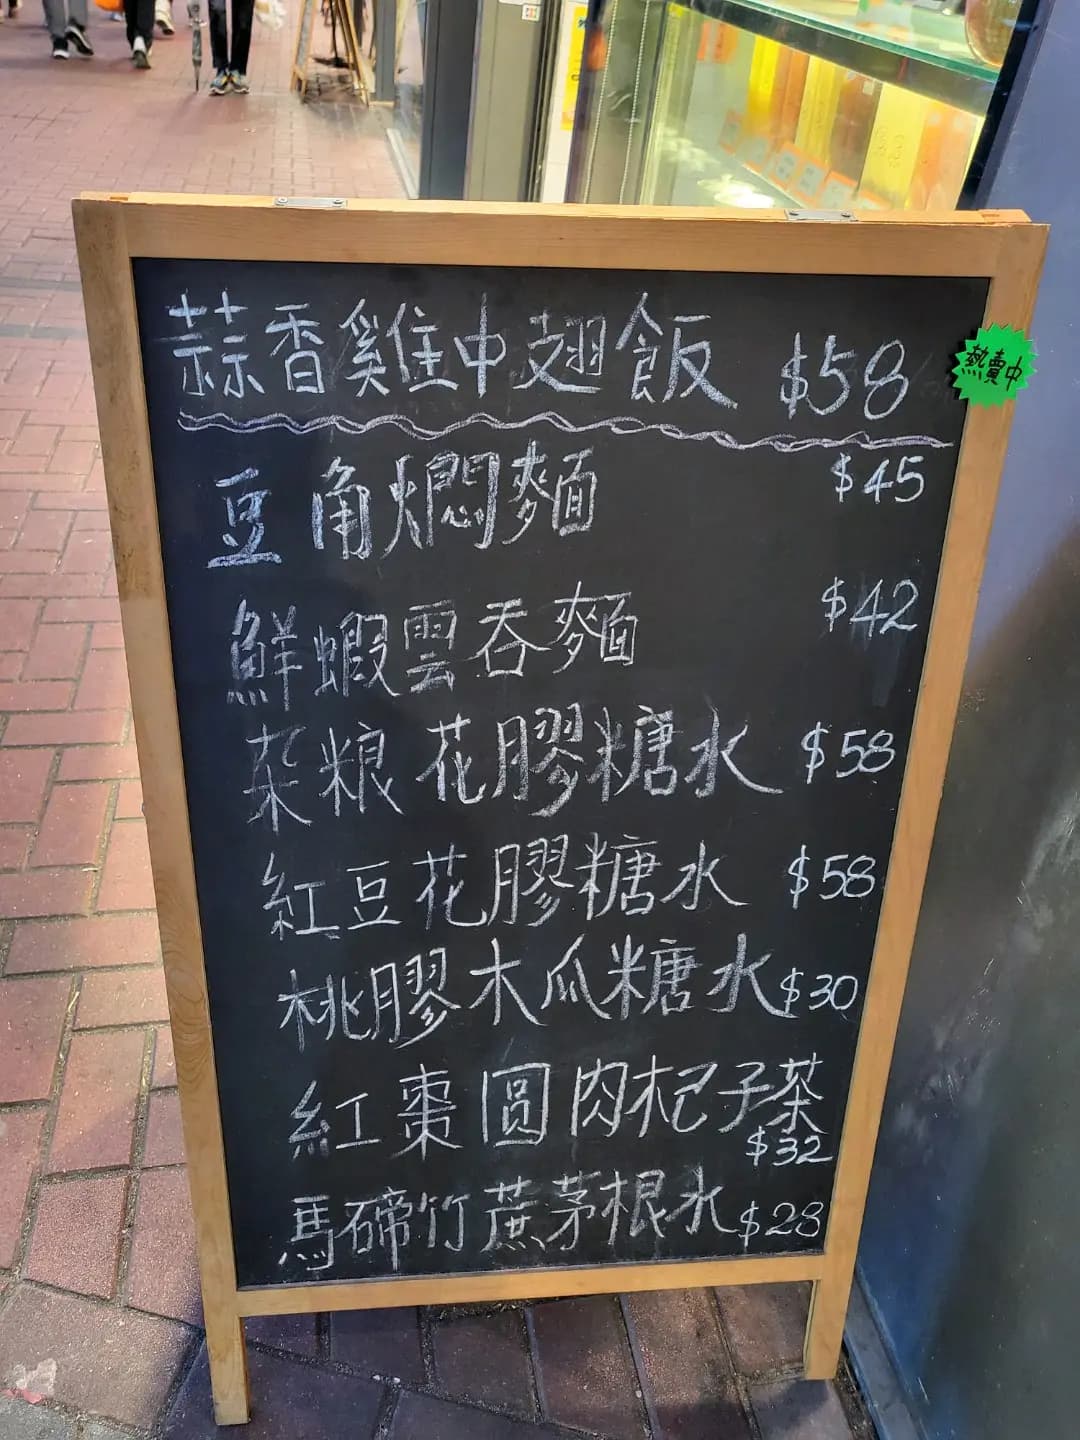 蒜香雞中翅飯 $58
熱賣中
豆角燜麵 $45
鮮蝦雲吞麵 $42
杂粮花膠糖水 $58
紅豆花膠糖水 $58
桃膠木瓜糖水 $30
紅棗圓肉杞子茶
$32
馬碲竹蔗茅根水 $28